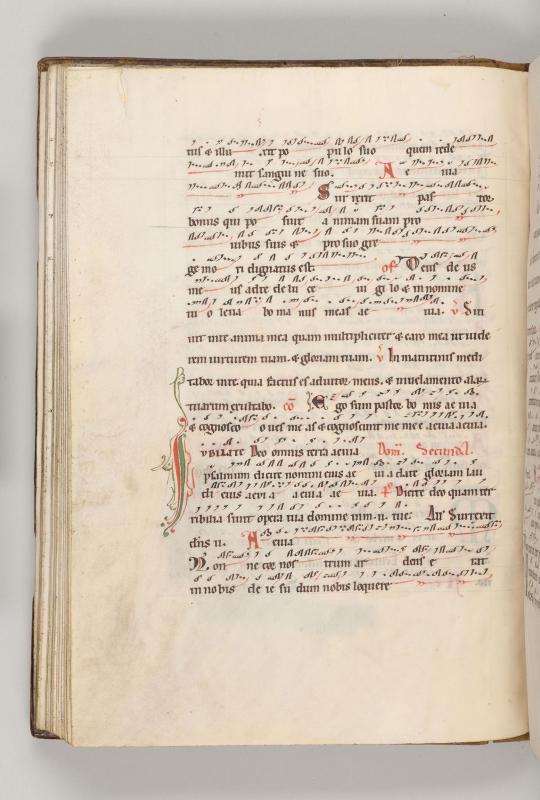 tus & illu xit po pu lo suo quem rede
mit sangui ne suo. A e uia
Sur rexit pas tor
bonus qui po suit a nimam suam pro
uibus suis & pro suo gre
ge mo ri dignatus est. of Deus de us
me us ad te de lu ce ui gi lo & in nomine
tu o leua bo ma nus meas ae uia. v Sit
uit in te anima mea quam multipliciter & caro mea ut uide
rem uirtutem tuam. & gloriam tuam. v In matutinis medi
tabor in te. quia factus es adiutor meus. & in uelamento alar
tuarum exultabo. co E go sum pastor bo nus ae uia
& cognosco o ues me as & cognoscunt me me e aeuia aeuia.
I ubilate Deo omnis terra aeuia Dom Secunda.
psalmum dicite nomini eius ae uia date gloriam lau
di eius aeui a aeuia ae uia. ps Dicite deo quam ter
ribilia sunt opera tua domine in m. u. tue. All Surrexit
dns u. A euia
Non ne cor nos trum ar dens e rat
in nobis de ie su dum nobis loquere